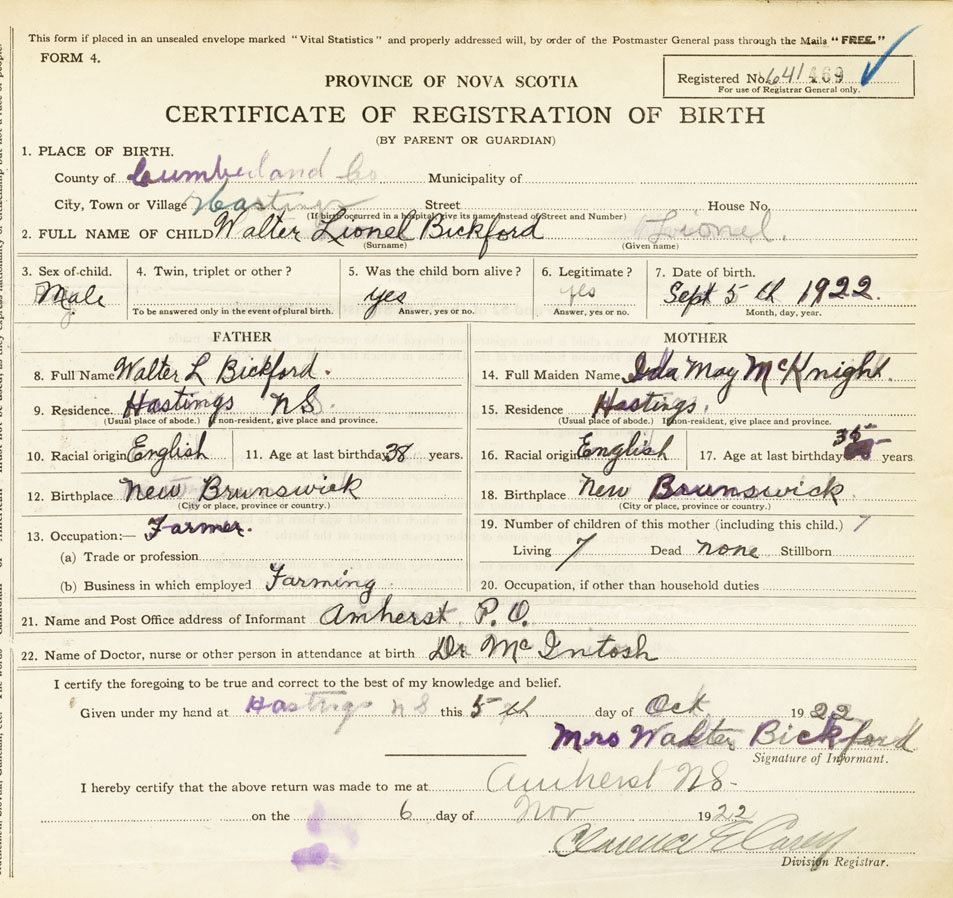 This form if placed in an unsealed envelope marked "Vital Statistics" and properly addressed will, by order of the Postmaster General pass through the Mails "FREE."
FORM 4.
PROVINCE OF NOVA SCOTIA
Registered No. 641469
For use of Registrar General only.
CERTIFICATE OF REGISTRATION OF BIRTH
(BY PARENT OR GUARDIAN)
1. PLACE OF BIRTH.
County of Cumberland Co Municipality of
City, Town or Village Hastings Street House No.
(If birth occurred in a hospital give its name instead of Street and Number)
2. FULL NAME OF CHILD Walter Lionel Bickford Lionel.
(Surname) (Given name)
3. Sex of child. 4. Twin, triplet or other? 5. Was the child born alive? 6. Legitimate? 7. Date of birth.
Male yes yes Sept 5th 1922.
To be answered only in the event of plural birth. Answer, yes or no. Answer, yes or no. Month, day, year.
FATHER MOTHER
8. Full Name Walter L Bickford. 14. Full Maiden Name Ida May McKnight.
9. Residence. Hastings NS. 15. Residence Hastings.
(Usual place of abode.) If non-resident, give place and province. (Usual place of abode.) If non-resident, give place and province.
10. Racial origin English 11. Age at last birthday 38 years. 16. Racial origin English 17. Age at last birthday 35 years
12. Birthplace New Brunswick 18. Birthplace New Brunswick.
(City or place, province or country.) (City or place, province or country.)
13. Occupation:— Farmer. 19. Number of children of this mother (including this child.) 7
(a) Trade or profession Living 7 Dead none Stillborn
(b) Business in which employed Farming 20. Occupation, if other than household duties
21. Name and Post Office address of Informant Amherst. P.O.
22. Name of Doctor, nurse or other person in attendance at birth Dr McIntosh
I certify the foregoing to be true and correct to the best of my knowledge and belief.
Given under my hand at Hastings NS this 5th day of Oct. 1922
Mrs Walter Bickford
Signature of Informant.
I hereby certify that the above return was made to me at Amherst NS-
on the 6 day of Nov 1922
Clarence E Casey
Division Registrar.